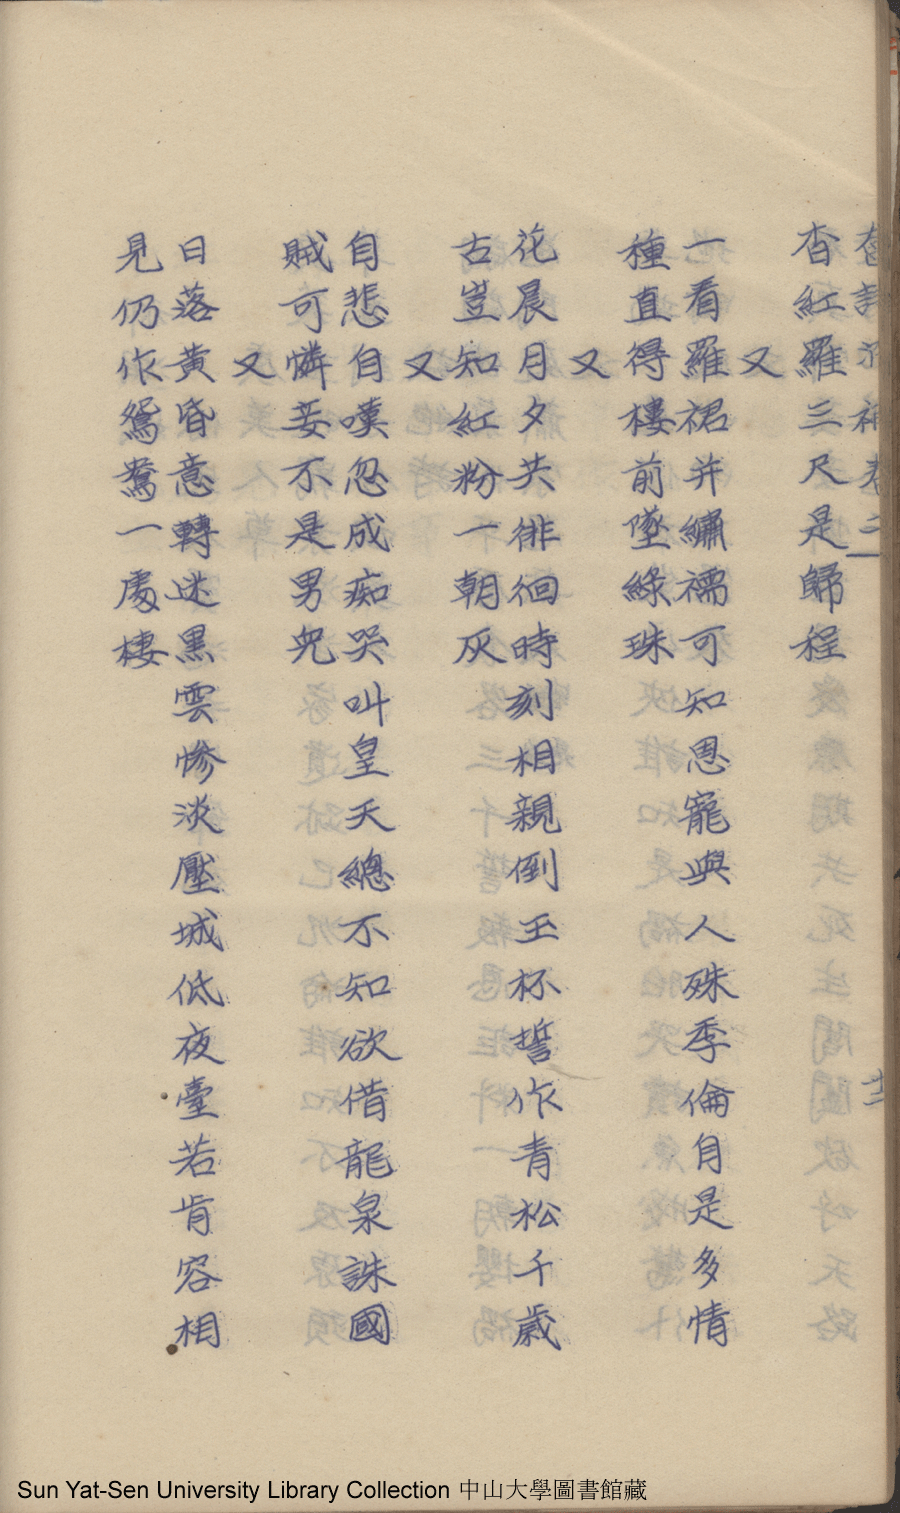 杳紅羅三尺是歸程
又
一看羅裙并繡襦可知恩寵與人殊季倫自是多情
種直得樓前墜綠珠
又
花晨月夕共徘徊時刻相親倒玉杯誓作青松千歲
古豈知紅粉一朝灰
又
自悲自嘆忽成痴哭叫皇天總不知欲借龍泉誅國
賊可憐妾不是男兒
又
日落黃昏意轉迷黑雲慘淡壓城低夜臺若肯容相
見仍作鴛鴦一處棲
Sun Yat-Sen University Library Collection 中山大學圖書館藏